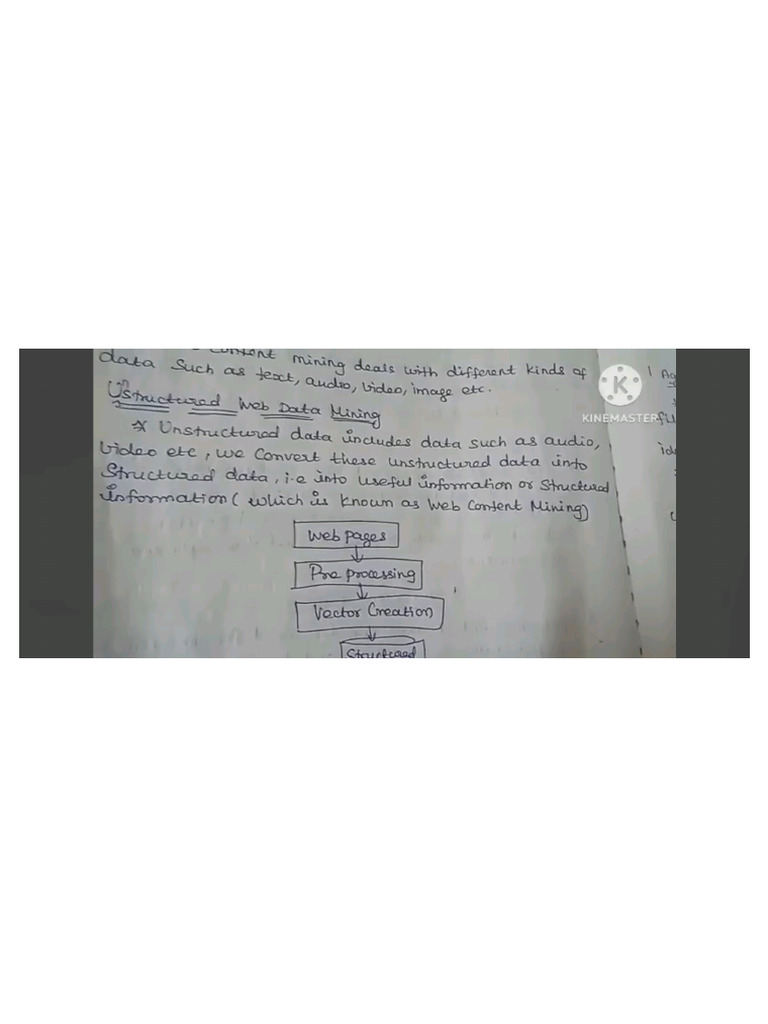 content mining deals with different kinds of
data such as text, audio, video, image etc.
Unstructured Web Data Mining
* Unstructured data includes data such as audio,
video etc, we convert these unstructured data into
structured data, i.e into useful information or structured
information ( which is known as Web Content Mining)
Web pages
Pre processing
Vector Creation
Structured
K
KINEMASTER